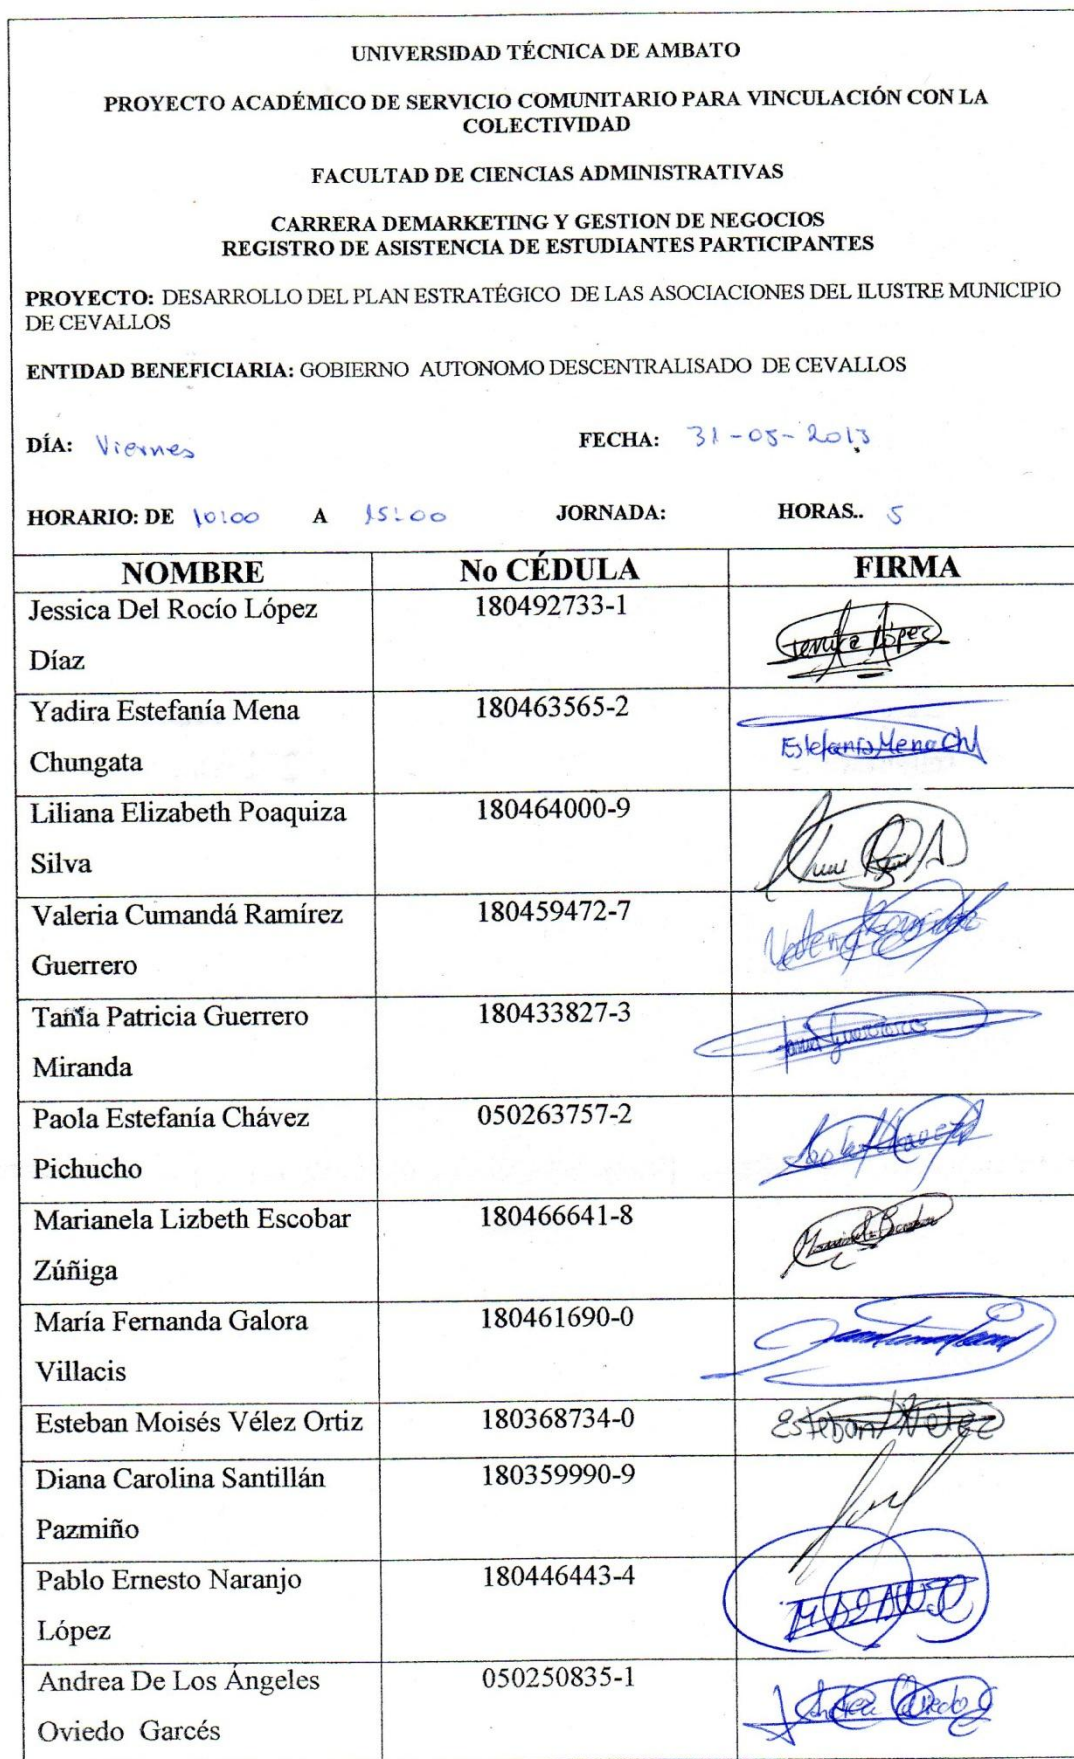 UNIVERSIDAD TÉCNICA DE AMBATO
PROYECTO ACADÉMICO DE SERVICIO COMUNITARIO PARA VINCULACIÓN CON LA
COLECTIVIDAD
FACULTAD DE CIENCIAS ADMINISTRATIVAS
CARRERA DEMARKETING Y GESTION DE NEGOCIOS
REGISTRO DE ASISTENCIA DE ESTUDIANTES PARTICIPANTES
PROYECTO: DESARROLLO DEL PLAN ESTRATÉGICO DE LAS ASOCIACIONES DEL ILUSTRE MUNICIPIO
DE CEVALLOS
ENTIDAD BENEFICIARIA: GOBIERNO AUTONOMO DESCENTRALISADO DE CEVALLOS
DÍA: Viernes FECHA: 31-05-2013
HORARIO: DE 10:00 A 15:00 JORNADA: HORAS.. 5
NOMBRE No CÉDULA FIRMA
Jessica Del Rocío López 180492733-1
Díaz
Yadira Estefanía Mena 180463565-2
Chungata Estefanía Mena Ch
Liliana Elizabeth Poaquiza 180464000-9
Silva
Valeria Cumandá Ramírez 180459472-7
Guerrero
Tania Patricia Guerrero 180433827-3
Miranda
Paola Estefanía Chávez 050263757-2
Pichucho
Marianela Lizbeth Escobar 180466641-8
Zúñiga
María Fernanda Galora 180461690-0
Villacis
Esteban Moisés Vélez Ortiz 180368734-0 Esteban Vélez
Diana Carolina Santillán 180359990-9
Pazmiño
Pablo Ernesto Naranjo 180446443-4
López
Andrea De Los Ángeles 050250835-1
Oviedo Garcés